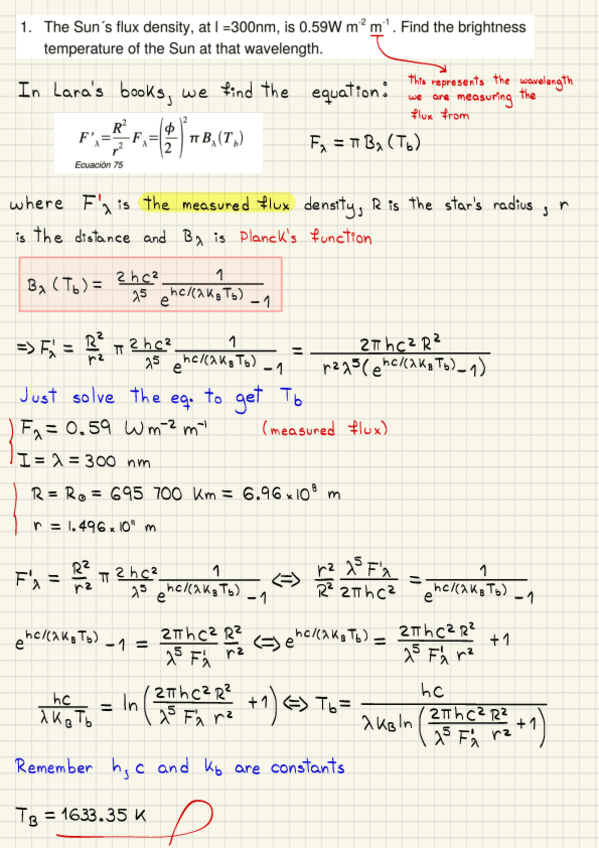 1. The Sun´s flux density, at l =300nm, is 0.59W m⁻² m⁻¹. Find the brightness
temperature of the Sun at that wavelength.
In Lara's books, we find the equation:
This represents the wavelength
we are measuring the
flux from
F'λ = R²/r² Fλ = (ϕ/2)² π Bλ(Tb)
Ecuación 75
Fλ = π Bλ (Tb)
where F'λ is the measured flux density, R is the star's radius, r
is the distance and Bλ is Planck's function
Bλ (Tb) = 2hc²/λ⁵ 1/(e^(hc/(λKBTb)) - 1)
=> F'λ = R²/r² π 2hc²/λ⁵ 1/(e^(hc/(λKBTb)) - 1) = 2πhc²R²/(r²λ⁵(e^(hc/(λKBTb)) - 1))
Just solve the eq. to get Tb
Fλ = 0.59 W m⁻² m⁻¹ (measured flux)
I = λ = 300 nm
R = R⊙ = 695 700 Km = 6.96 × 10⁸ m
r = 1.496 × 10¹¹ m
F'λ = R²/r² π 2hc²/λ⁵ 1/(e^(hc/(λKBTb)) - 1) <=> r²/R² λ⁵F'λ/2πhc² = 1/(e^(hc/(λKBTb)) - 1)
e^(hc/(λKBTb)) - 1 = 2πhc²/(λ⁵ F'λ) R²/r² <=> e^(hc/(λKBTb)) = 2πhc²R²/(λ⁵ F'λ r²) + 1
hc/(λKBTb) = ln(2πhc²R²/(λ⁵ F'λ r²) + 1) <=> Tb = hc/(λKB ln(2πhc²R²/(λ⁵ F'λ r²) + 1))
Remember h, c and kb are constants
TB = 1633.35 K